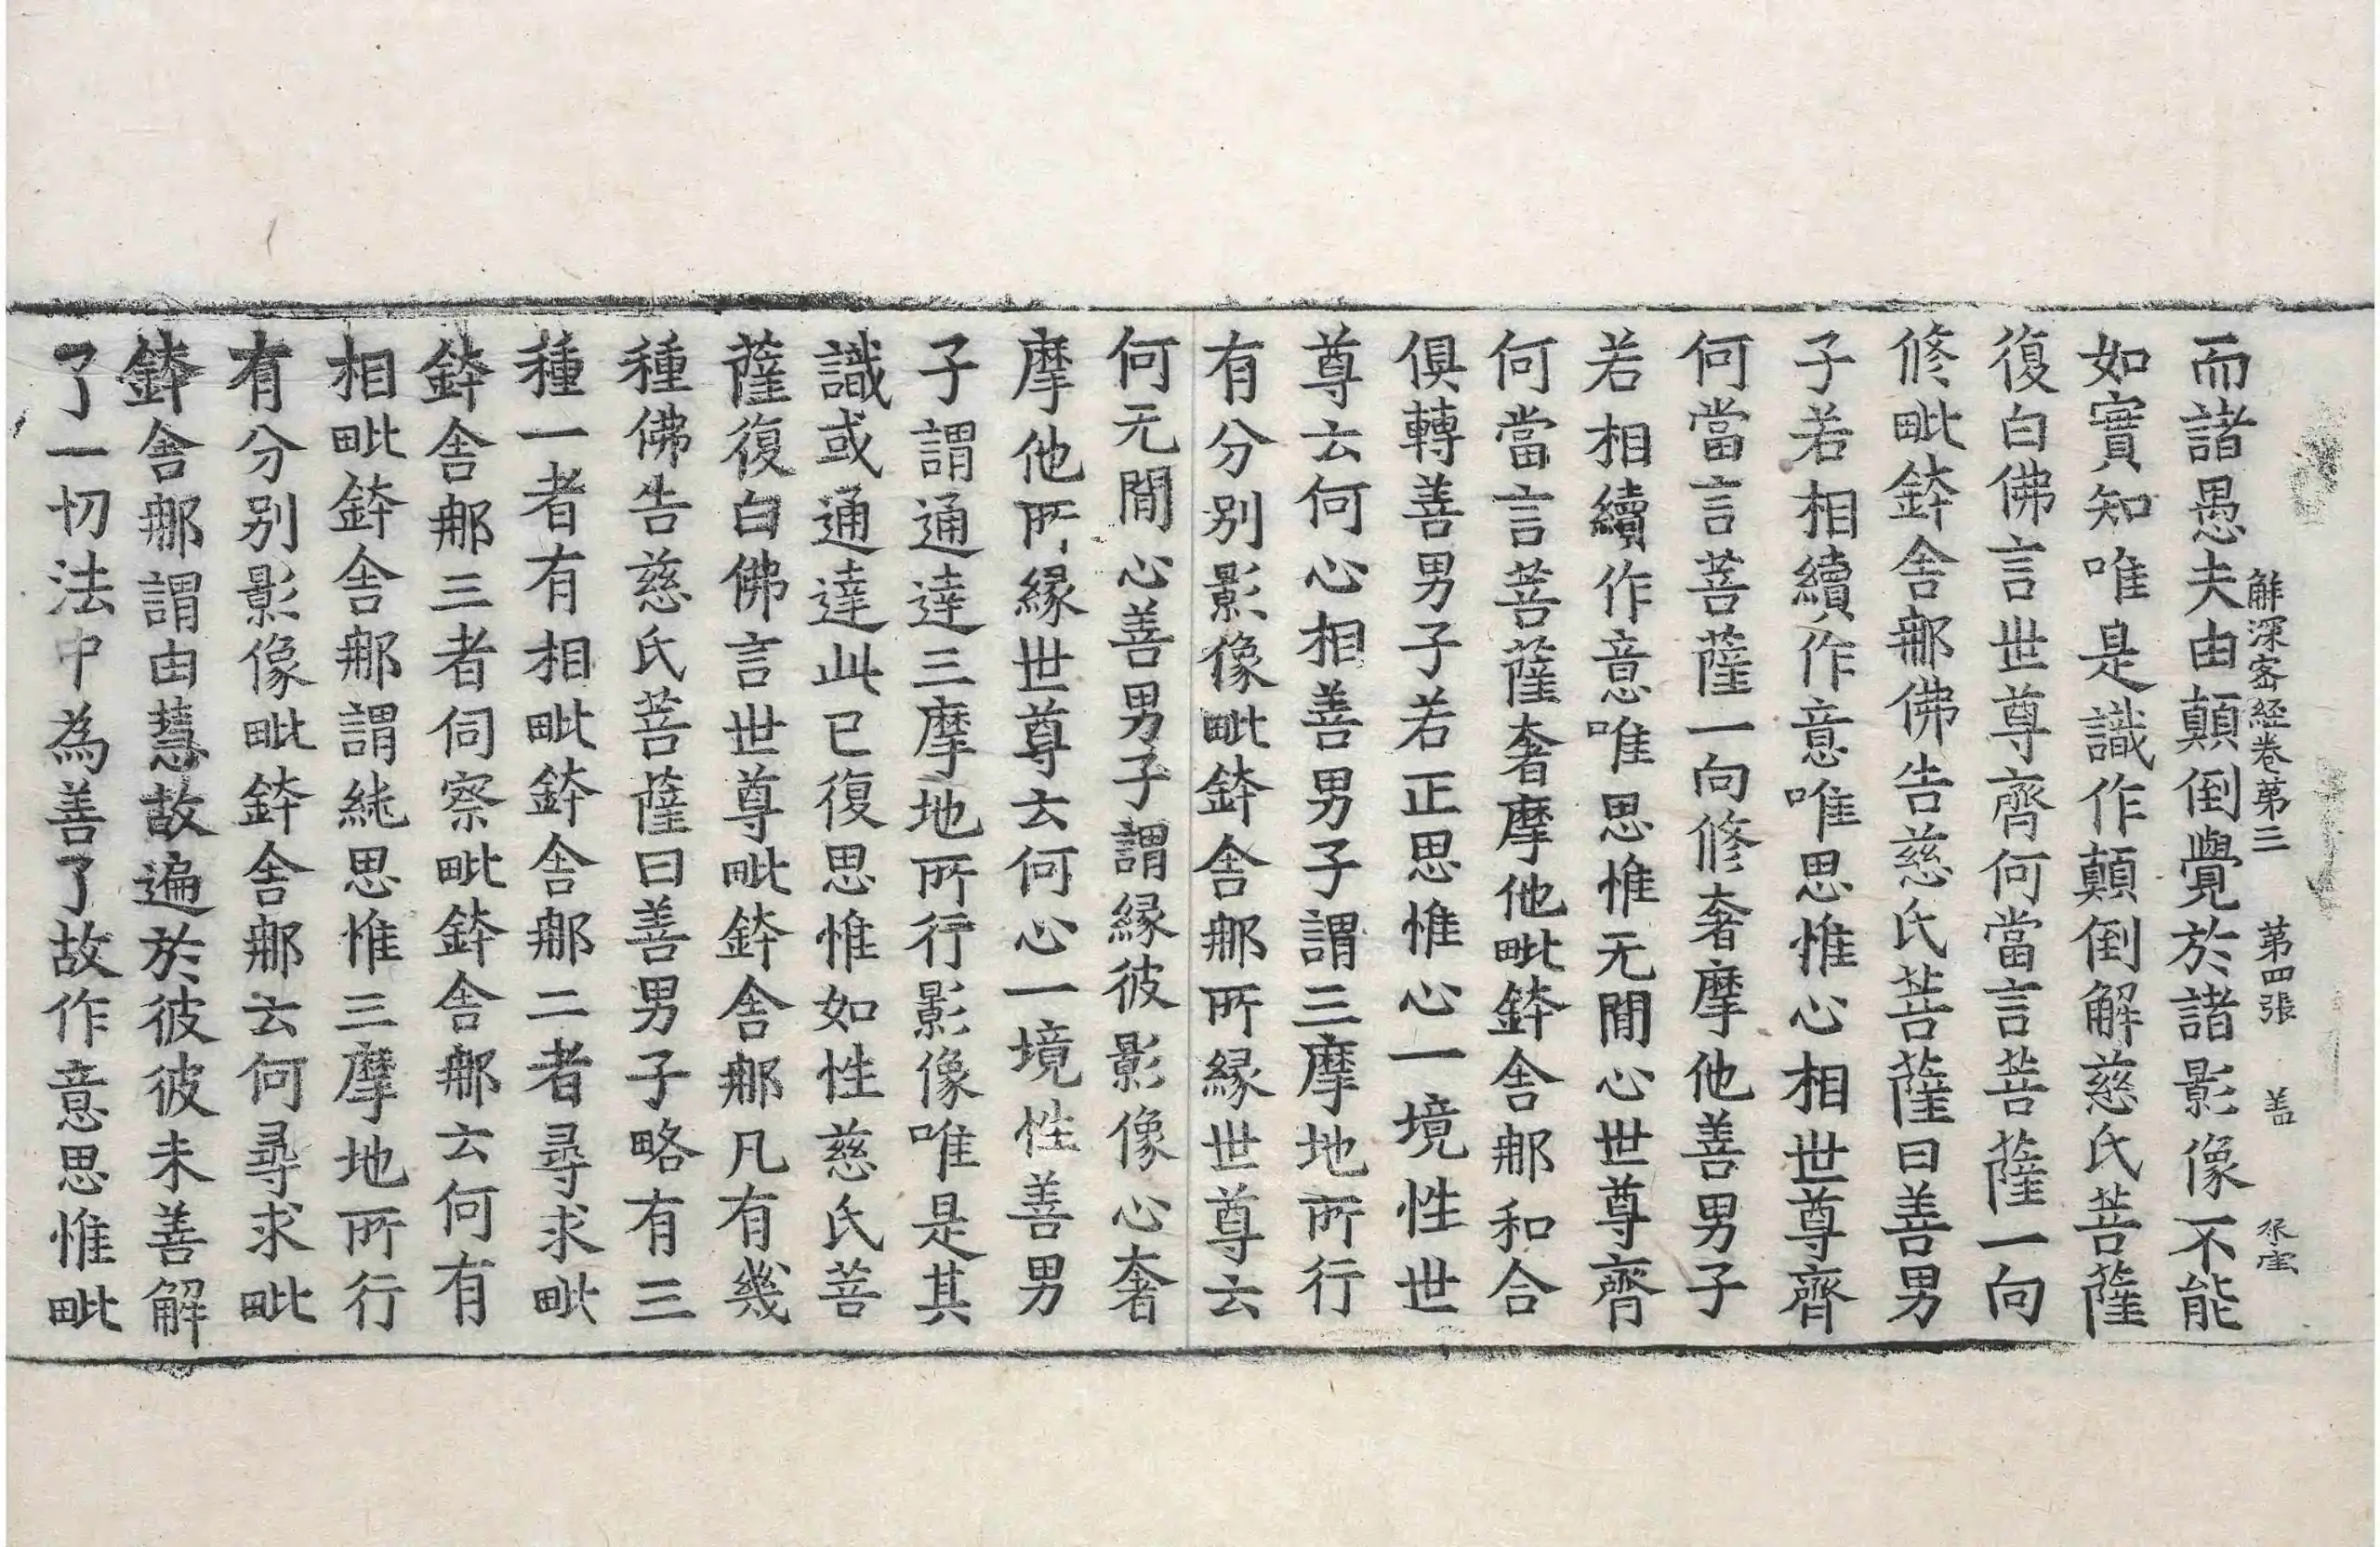 解深密経卷第三　第四張　盖
而諸愚夫由顛倒覺於諸影像不能
如實知唯是識作顛倒解慈氏菩薩
復白佛言世尊齊何當言菩薩一向
修毗鉢舍那佛告慈氏菩薩曰善男
子若相續作意唯思惟心相世尊齊
何當言菩薩一向修奢摩他善男子
若相續作意唯思惟无閒心世尊齊
何當言菩薩奢摩他毗鉢舍那和合
俱轉善男子若正思惟心一境性世
尊云何心相善男子謂三摩地所行
有分别影像毗鉢舍那所縁世尊云
何无閒心善男子謂縁彼影像心奢
摩他所縁世尊云何心一境性善男
子謂通達三摩地所行影像唯是其
識或通達此已復思惟如性慈氏菩
薩復白佛言世尊毗鉢舍那凡有幾
種佛告慈氏菩薩曰善男子略有三
種一者有相毗鉢舍那二者尋求毗
鉢舍那三者伺察毗鉢舍那云何有
相毗鉢舍那謂純思惟三摩地所行
有分别影像毗鉢舍那云何尋求毗
鉢舍那謂由慧故遍於彼彼未善解
了一切法中為善了故作意思惟毗